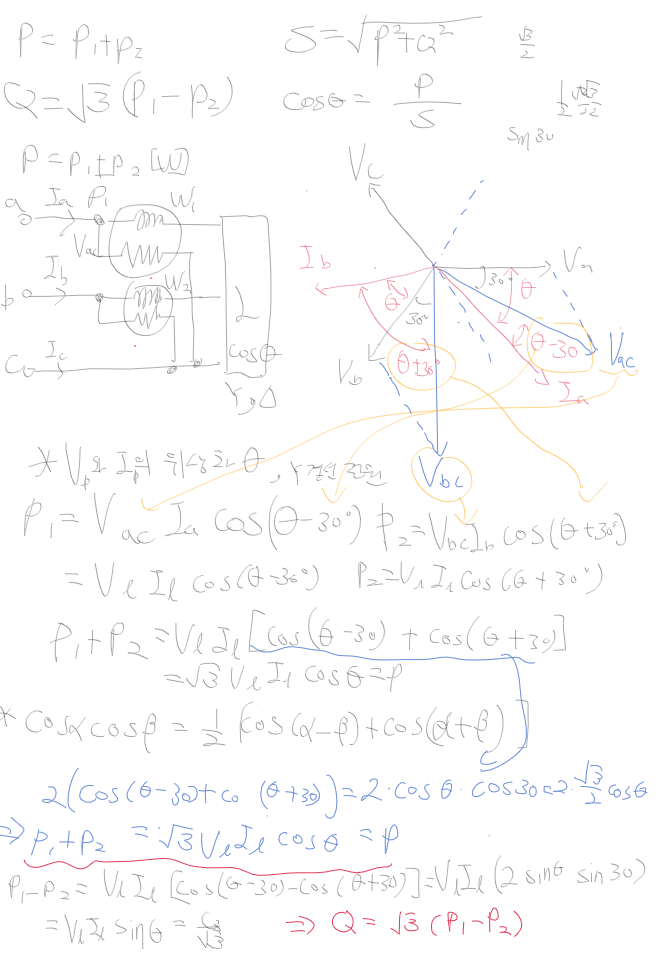 P = P₁+P₂
S = √P²+Q²
√3/2
Q = √3 (P₁-P₂)
cosθ = P/S
sin 30
P = P₁+P₂ [W]
a Ia P₁ W₁
Vac
Ib W₂
b
L
cosθ
c Ic
Y, Δ
Vc
Ib
Va
30°
θ
θ
30°
θ-30
Vac
Vb
θ+30°
Ia
Vbc
* Vp와 Ip의 위상차 θ
P₁ = Vac Ia cos(θ-30°) P₂ = Vbc Ib cos(θ+30°)
= Vl Il cos(θ-30°) P₂ = Vl Il cos(θ+30°)
P₁+P₂ = Vl Il [cos(θ-30) + cos(θ+30)]
= √3 Vl Il cosθ = P
* cosα cosβ = 1/2 [cos(α-β)+cos(α+β)]
2(cos(θ-30)+co (θ+30)) = 2·cosθ·cos30=2·√3/2 cosθ
⇒ P₁+P₂ = √3 Vl Il cosθ = P
P₁-P₂ = Vl Il [cos(θ-30)-cos(θ+30)] = Vl Il (2 sinθ sin 30)
= Vl Il sinθ = Q/√3 ⇒ Q = √3 (P₁-P₂)